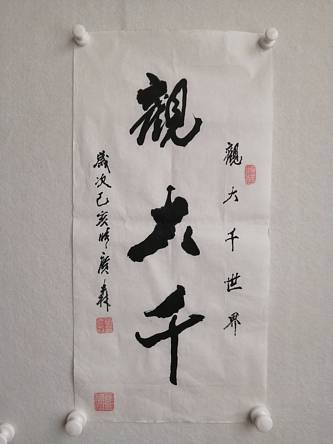 觀大千
觀大千世界
歲次己亥時廣森